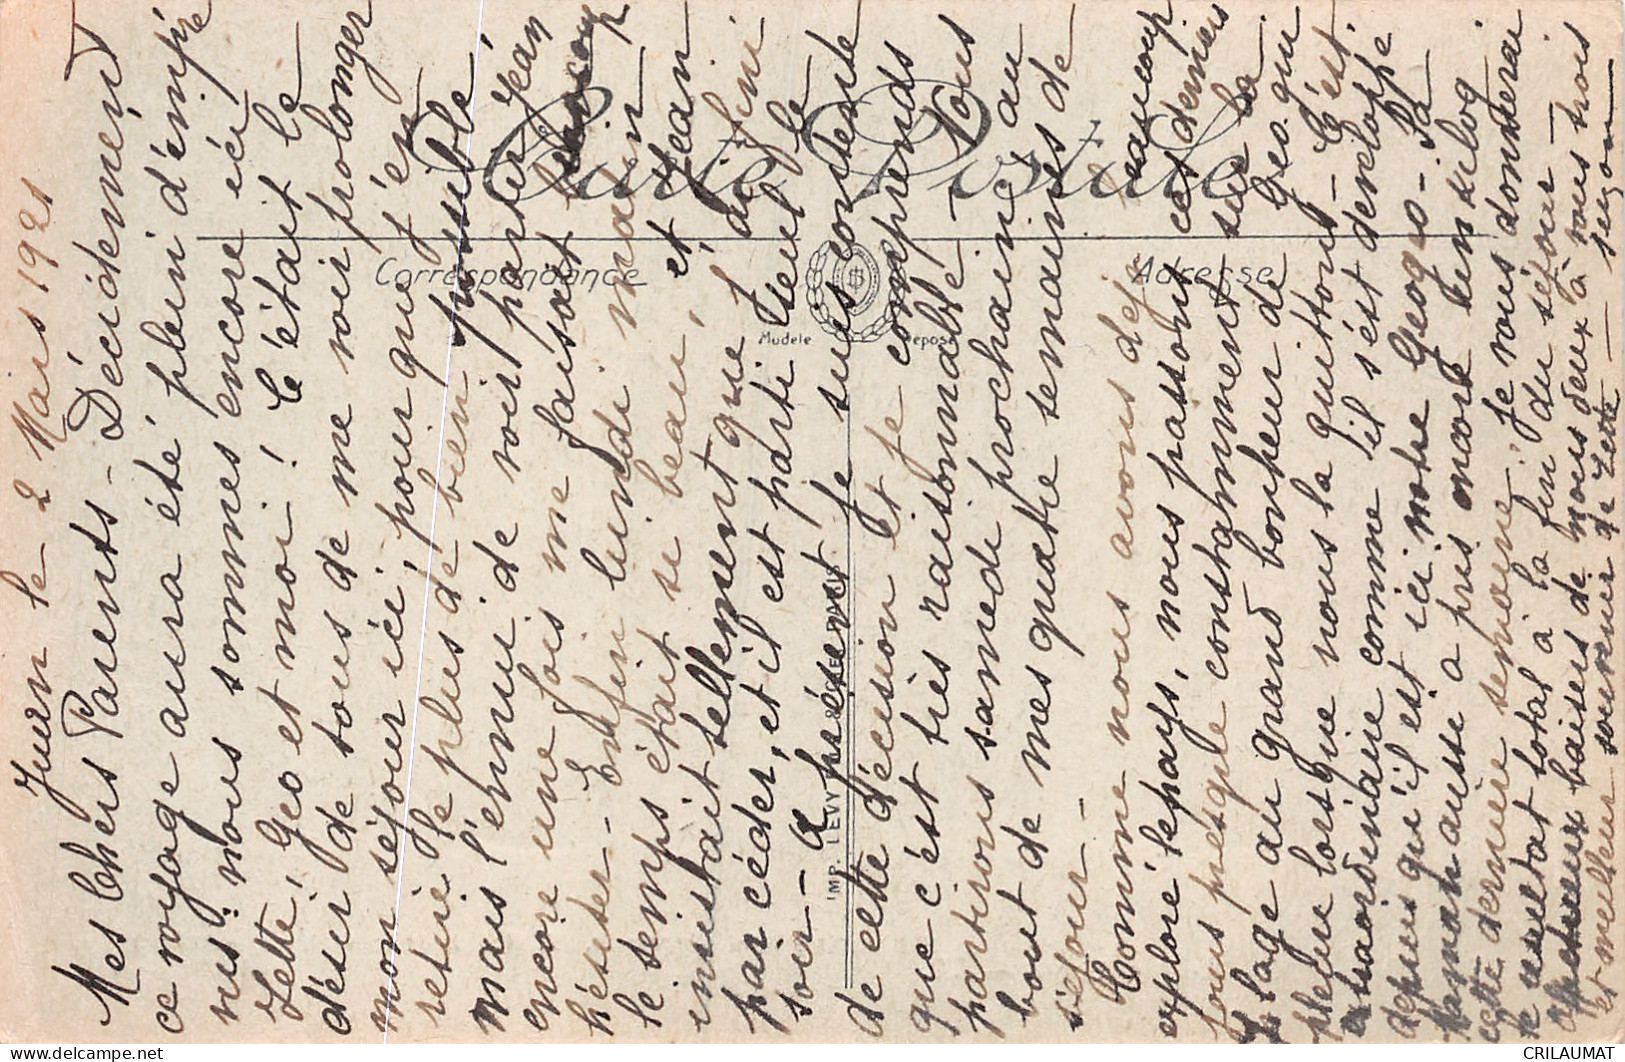 Juan le 2 Mars 1921
Mes Chers Parents - Décidément
ce voyage aura été plein d'impré
vus! nous sommes encore ici
Zette, Geo et moi! C'était le
désir de tous de me voir prolonger
mon séjour ici, pour que j'en
retire le plus de bien possible,
mais l'ennui de voir partir Jean
encore une fois me faisait beaucoup
hésiter - Enfin lundi matin
le temps était si beau, et Jean
insistait tellement que j'ai fini
par céder, et il est parti seul le
soir - à présent je suis contente
de cette décision et je comprends
que c'est très raisonnable - Nous
partirons samedi prochain, au
bout de mes quatre semaines de
séjour -
Comme nous avons déjà beaucoup
exploré le pays, nous passons ces derniers
jours presque constamment sur la
plage au grand bonheur de Geo. qui
pleure lorsque nous la quittons - C'est
extraordinaire comme il s'est développé
depuis qu'il est ici notre Geogeo - Sa
Maman aussi a pris encore un kilog
cette dernière semaine. Je vous donnerai
le résultat total à la fin du séjour -
Affectueux baisers de nous deux à vous trois
et meilleur souvenir de Zette -
Suzon
Carte Postale
Correspondance
Adresse
Modèle
Déposé
IMP. LEVY
CRILAUMAT
delcampe.net